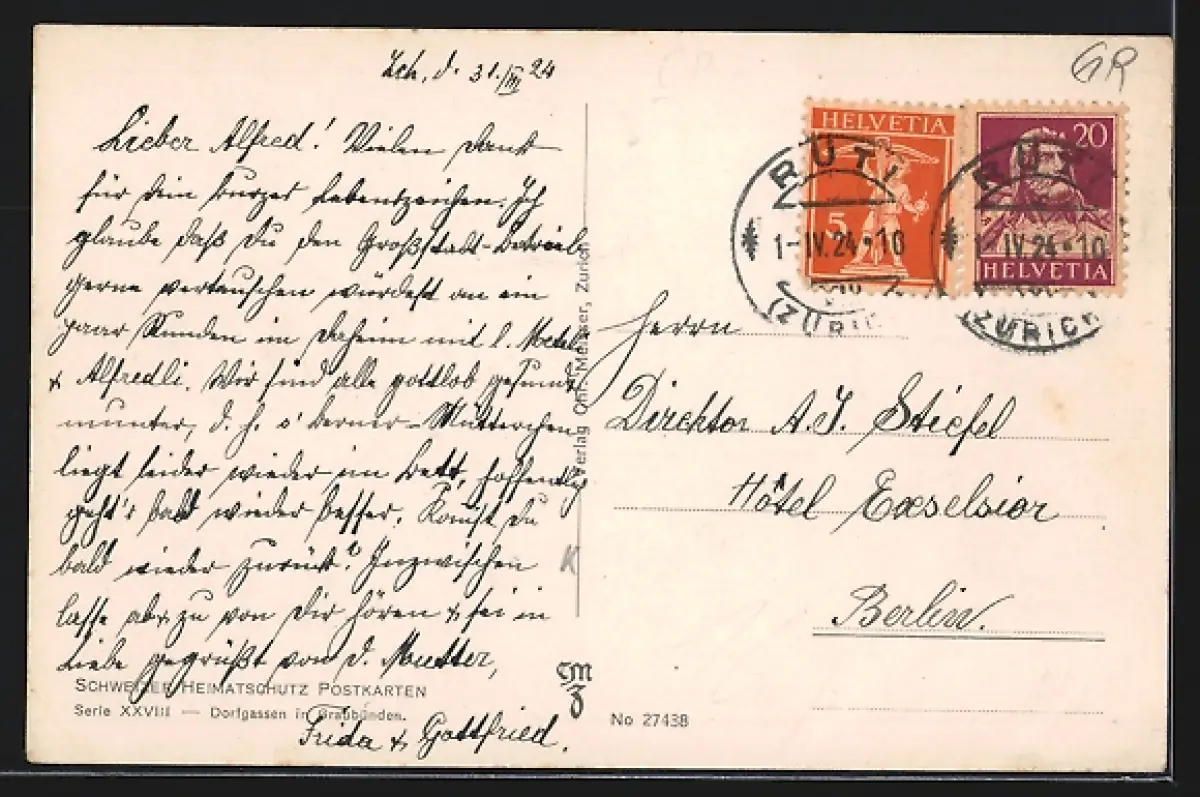 Zch, d. 31./III 24
GR
Lieber Alfred! Vielen Dank
für dein kurzes Lebenszeichen. Ich
glaube daß du den Großstadt-Betrieb
gerne vertauschen würdest an ein
paar Stunden im Daheim mit l.
& Alfredli. Wir sind alle gottlob gesund
munter, d. h. s' Berner-Mütterchen
liegt leider wieder im Bett, hoffentlich
geht's bald wieder besser. Kommst du
bald wieder zurück? Inzwischen
lasse ab & zu von Dir hören & sei in
Liebe gegrüßt von d. Mutter,
Frida & Gottfried.
SCHWEIZER HEIMATSCHUTZ POSTKARTEN
Serie XXVIII — Dorfgassen in Graubünden.
Verlag Chr. Meisser, Zürich
K
CM
Z
No 27438
HELVETIA
5
20
HELVETIA
RÜTI
1-IV.24•10
(ZÜRICH
RÜTI
1-IV.24•10
(ZÜRICH
Herrn
Direktor A. J. Stiefel
Hôtel Exselsior
Berlin.